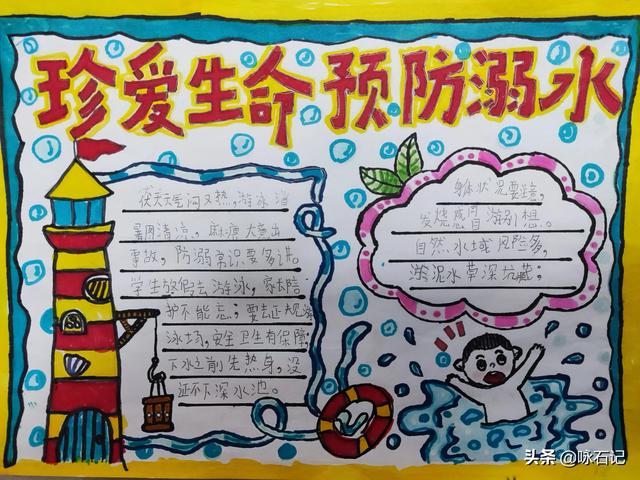 珍爱生命预防溺水
伏天气闷又热，游泳消
暑用清凉，麻痹大意出
事故，防溺常识要多讲。
学生放假去游泳，家长陪
护不能忘；要去正规游
泳场，安全卫生有保障，
下水之前先热身，没
证不下深水池。
身体状况要注意，
发烧感冒游别想。
自然水域风险多，
淤泥水草深坑藏；
头条 @咏石记